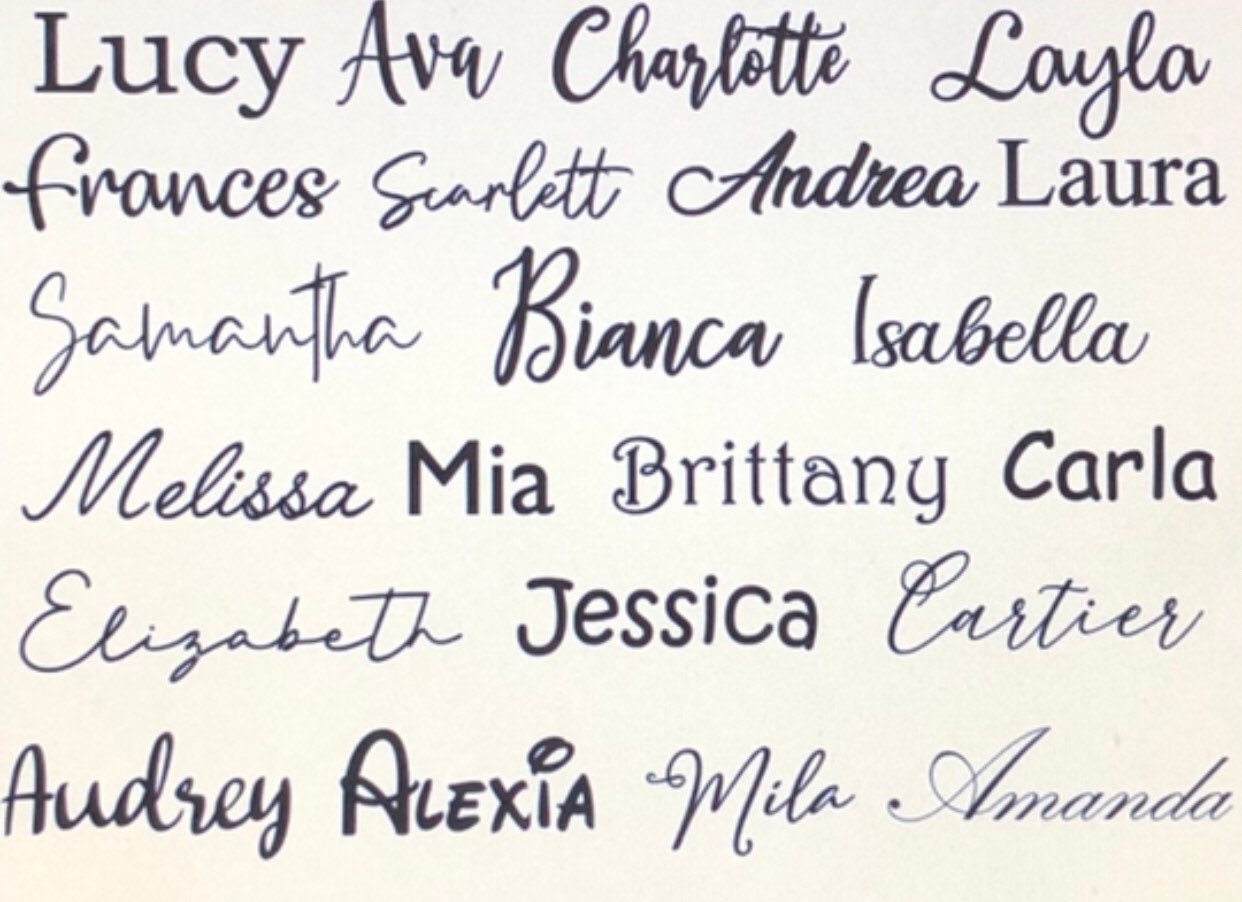 Lucy Ava Charlotte Layla
Frances Scarlett Andrea Laura
Samantha Bianca Isabella
Melissa Mia Brittany Carla
Elizabeth Jessica Cartier
Audrey Alexia Mila Amanda